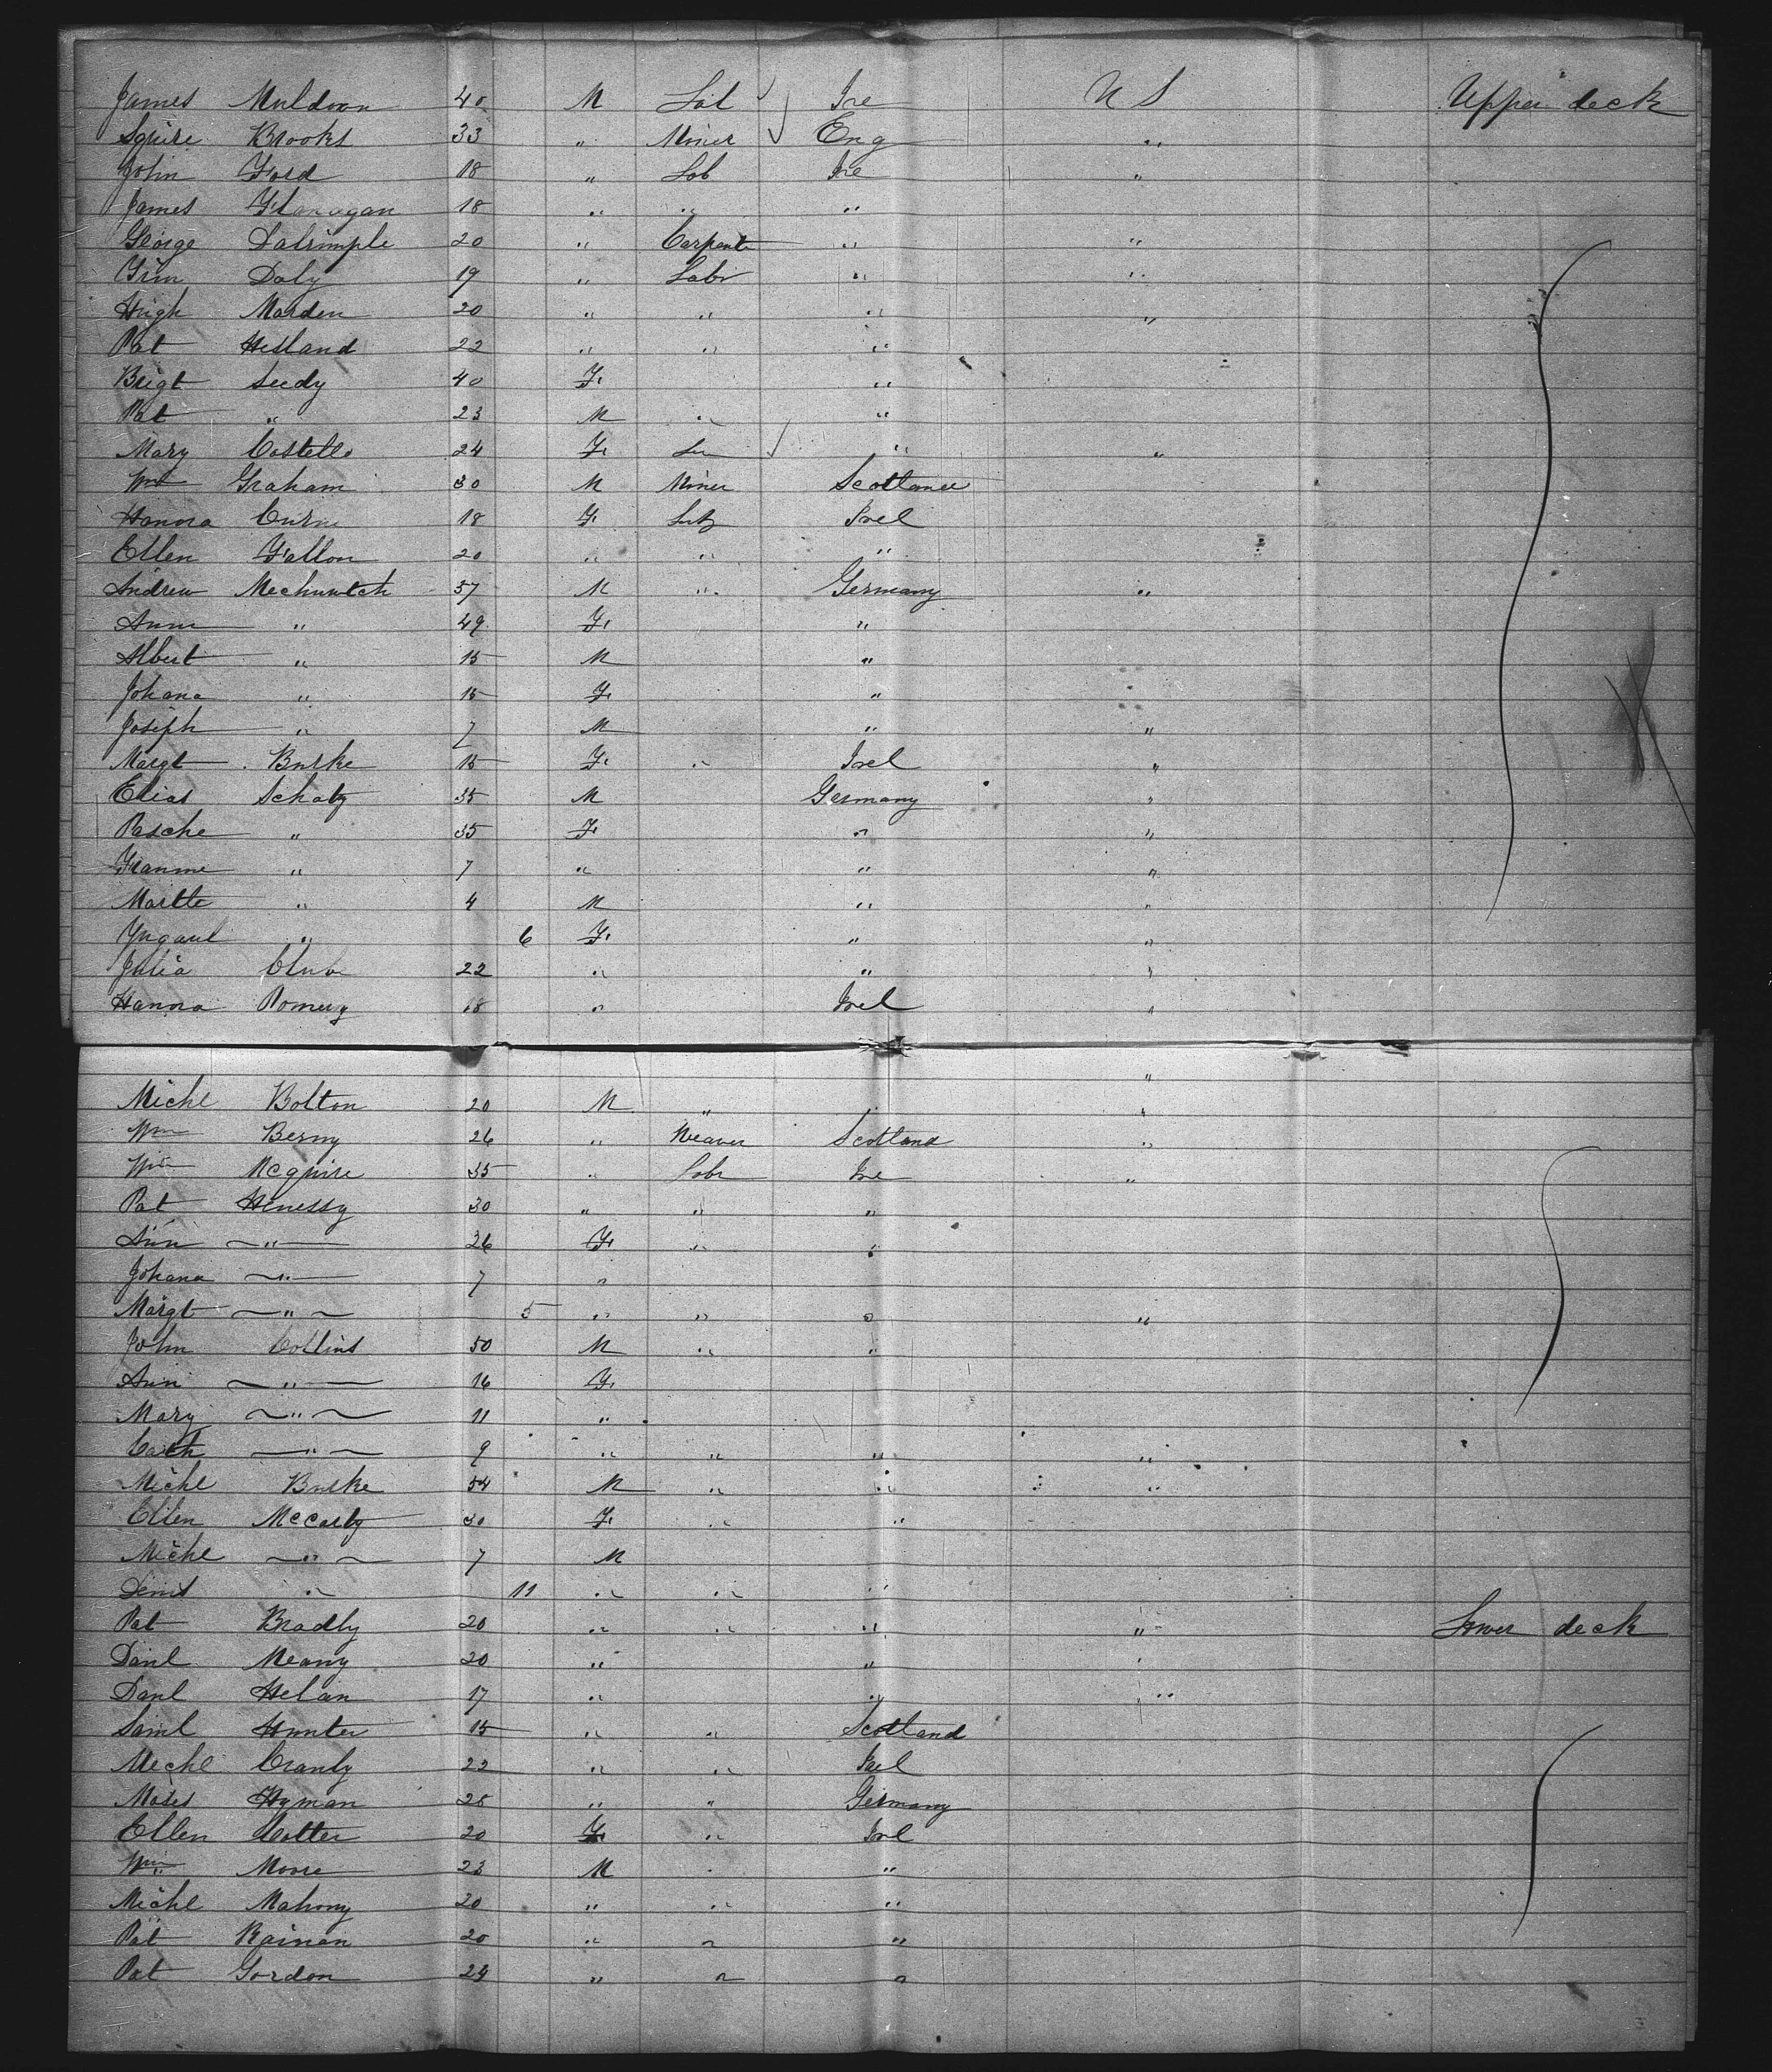 James Muldoon 40 M Lab Ire U S Upper deck
Squire Brooks 33 " Miner Eng "
John Ford 18 " Lab Ire "
James Flanagan 18 " " "
George Dalrimple 20 " Carpent " "
Daly 19 " Labr " "
Hugh Marden 20 " " " "
Pat Hesland 22 " " "
Brigt Leedy 40 F "
Pat " 23 M " "
Mary Costello 24 F " "
Wm Graham 30 M Miner Scotland
Hanora 18 F Irel
Ellen Fallon 20 " " "
Andrew Mechuwtch 37 M " Germany "
Ann " 49 F "
Albert " 15 M "
Johana " 15 F "
Joseph " 7 M " "
Margt Burke 15 F " Irel "
Elias Schatz 35 M Germany "
Pasche " 35 F " "
" 7 " " "
" 4 M " "
" 6 F " "
Julia 22 " " "
Hanora Pomery 18 " Irel "
"
Michl Bolton 20 M " " "
Wm Berny 26 " Weaver Scotland "
Wm Mcguire 35 " Labr Ire "
Pat Henessy 30 " " "
Ann " 26 F " "
Johana " 7 "
Margt " 5 " " " "
John Collins 50 M " "
Ann " 16 F
Mary " 11 "
Cath " 9 " " " "
Michl Burke 54 M " " "
Ellen McCarty 30 F " "
Michl " 7 M
Denis " 11 " " "
Pat Bradly 20 " " " " Lower deck
Danl Meany 20 " " "
Danl Helan 17 " " "
Saml Hunter 15 " " Scotland
Michl Cranly 22 " " Irel
Moses Hyman 28 " " Germany
Ellen Cotter 20 F " Irel
Wm Moore 23 M " "
Michl Mahony 20 " " "
Pat Rainan 20 " " "
Pat Gordon 24 " " "